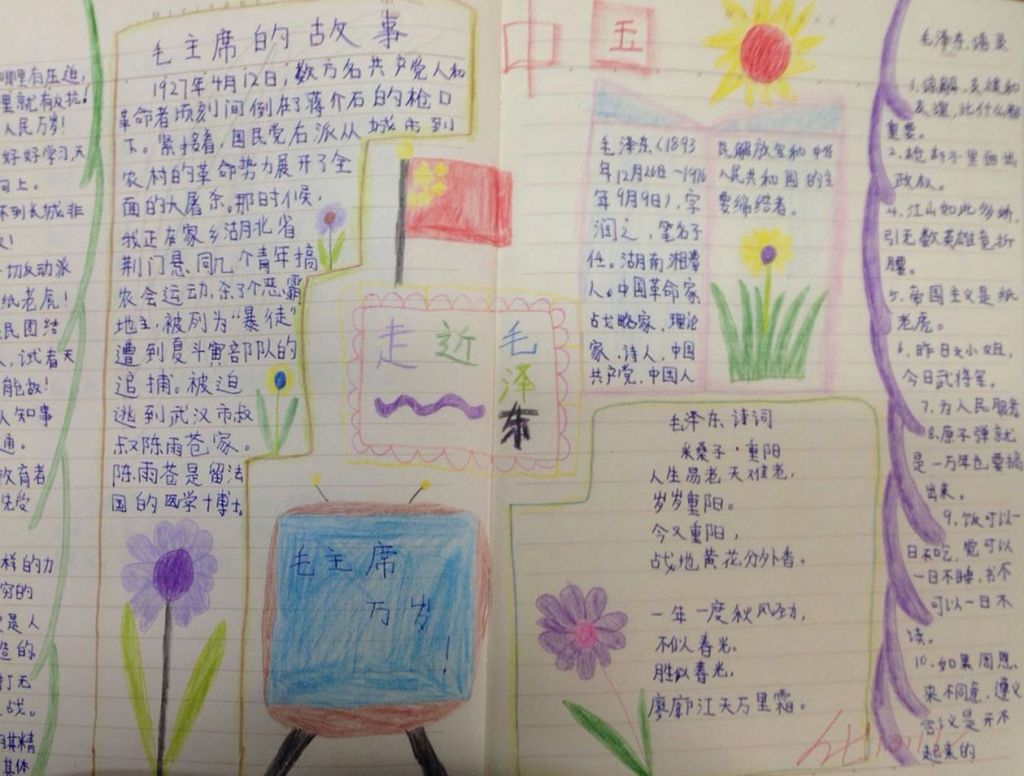 哪里有压迫,
里就有反抗!
人民万岁!
好好学习,天
向上。
不到长城非
!
一切反动派
纸老虎!
民团结
,试看天
能敌!
人知事
通。
教育者
先受
样的力
穷的
是人
造的
打无
战。
其精
具体
毛主席的故事
1927年4月12日,数万名共产党人和
革命者顷刻间倒在了蒋介石的枪口
下。紧接着,国民党右派从城市到
农村的革命势力展开了全
面的大屠杀。那时候,
我正在家乡湖北省
荆门县,同几个青年搞
农会运动,杀了个恶霸
地主,被列为“暴徒”
遭到夏斗寅部队的
追捕。被迫
逃到武汉市叔
叔陈雨苍家。
陈雨苍是留法
国的医学博士,
走近毛
泽
东
毛主席
万岁
!
中五
毛泽东(1893
年12月26日~1976
年9月9日),字
润之,笔名子
任。湖南湘潭
人。中国革命家
战略家,理论
家,诗人,中国
共产党,中国人
民解放军和中华
人民共和国的主
要缔结者。
毛泽东诗词
采桑子·重阳
人生易老天难老,
岁岁重阳。
今又重阳,
战地黄花分外香。
一年一度秋风劲,
不似春光。
胜似春光,
廖廓江天万里霜。
毛泽东语录
1.谅解,支援和
友谊,比什么都
重要。
2.枪杆子里面出
政权。
4.江山如此多娇,
引无数英雄竞折
腰。
5.帝国主义是纸
老虎。
6.昨日文小姐,
今日武将军。
7.为人民服务
8.原子弹就
是一万年也要搞
出来。
9.饭可以一
日不吃,觉可以
一日不睡,书不
可以一日不
读。
10.如果周恩
来不同意,遵义
会议是开不
起来的